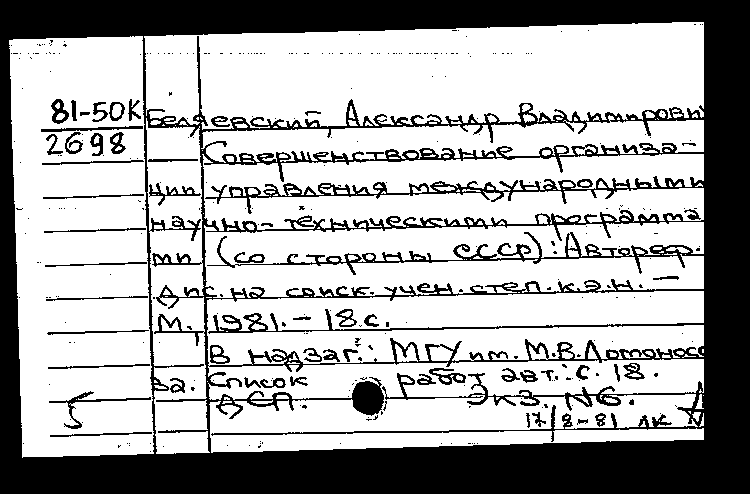 81-50К Беляевский, Александр Владимирови
2698 Совершенствование организа-
ции управления международными
научно-техническими программа
ми (со стороны СССР): Автореф.
дис. на соиск. учен. степ. к.э.н. –
М., 1981. – 18 с.
В надзаг.: МГУ им. М.В. Ломоносо
ва. Список работ авт.: с. 18.
ДСП. Экз. N6.
5 17/8-81 ЛК